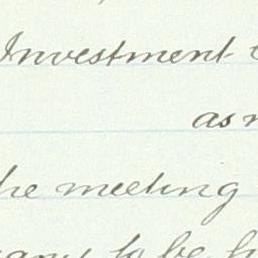 Investment
as
the meeting
to be